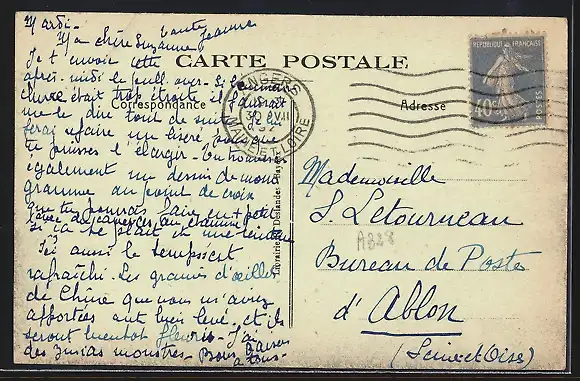 Mardi -
Ma chère Suzanne
tante Jeanne
Je t'envoie cette
après-midi le pull over. Si l'
était trop étroit il faudrait
me le dire tout de suite Je le
ferai refaire un liseré pour que
tu puisses l'élargir. Tu trouveras
également un dessin de mono
gramme au point de croix
que tu pourras faire en + petit
si ça te plaît
Ici aussi le temps s'est
rafraîchi. Les graines d'œillets
de Chine que vous m'avez
apportées ont bien levé. et ils
seront bientôt fleuris. J'ai
des zinias monstres - Bons baisers
à tous -
CARTE POSTALE
Correspondance
Adresse
ANGERS
30 VII
MAINE-ET-LOIRE
REPUBLIQUE FRANÇAISE
40c
POSTES
Mademoiselle
S. Letourneau
A328
Bureau de Poste
d'Ablon
(Seine et Oise)